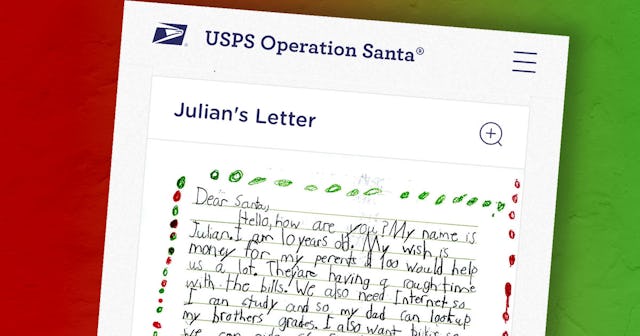 USPS Operation Santa®
Julian's Letter
Dear Santa,
Hello, how are you? My name is
Julian. I am 10 years old. My wish is
money for my perents $100 would help
us a lot. They are having a rough time
with the bills. We also need Internet so
I can study and so my dad can look up
my brothers grades. I also want bikes so
we can